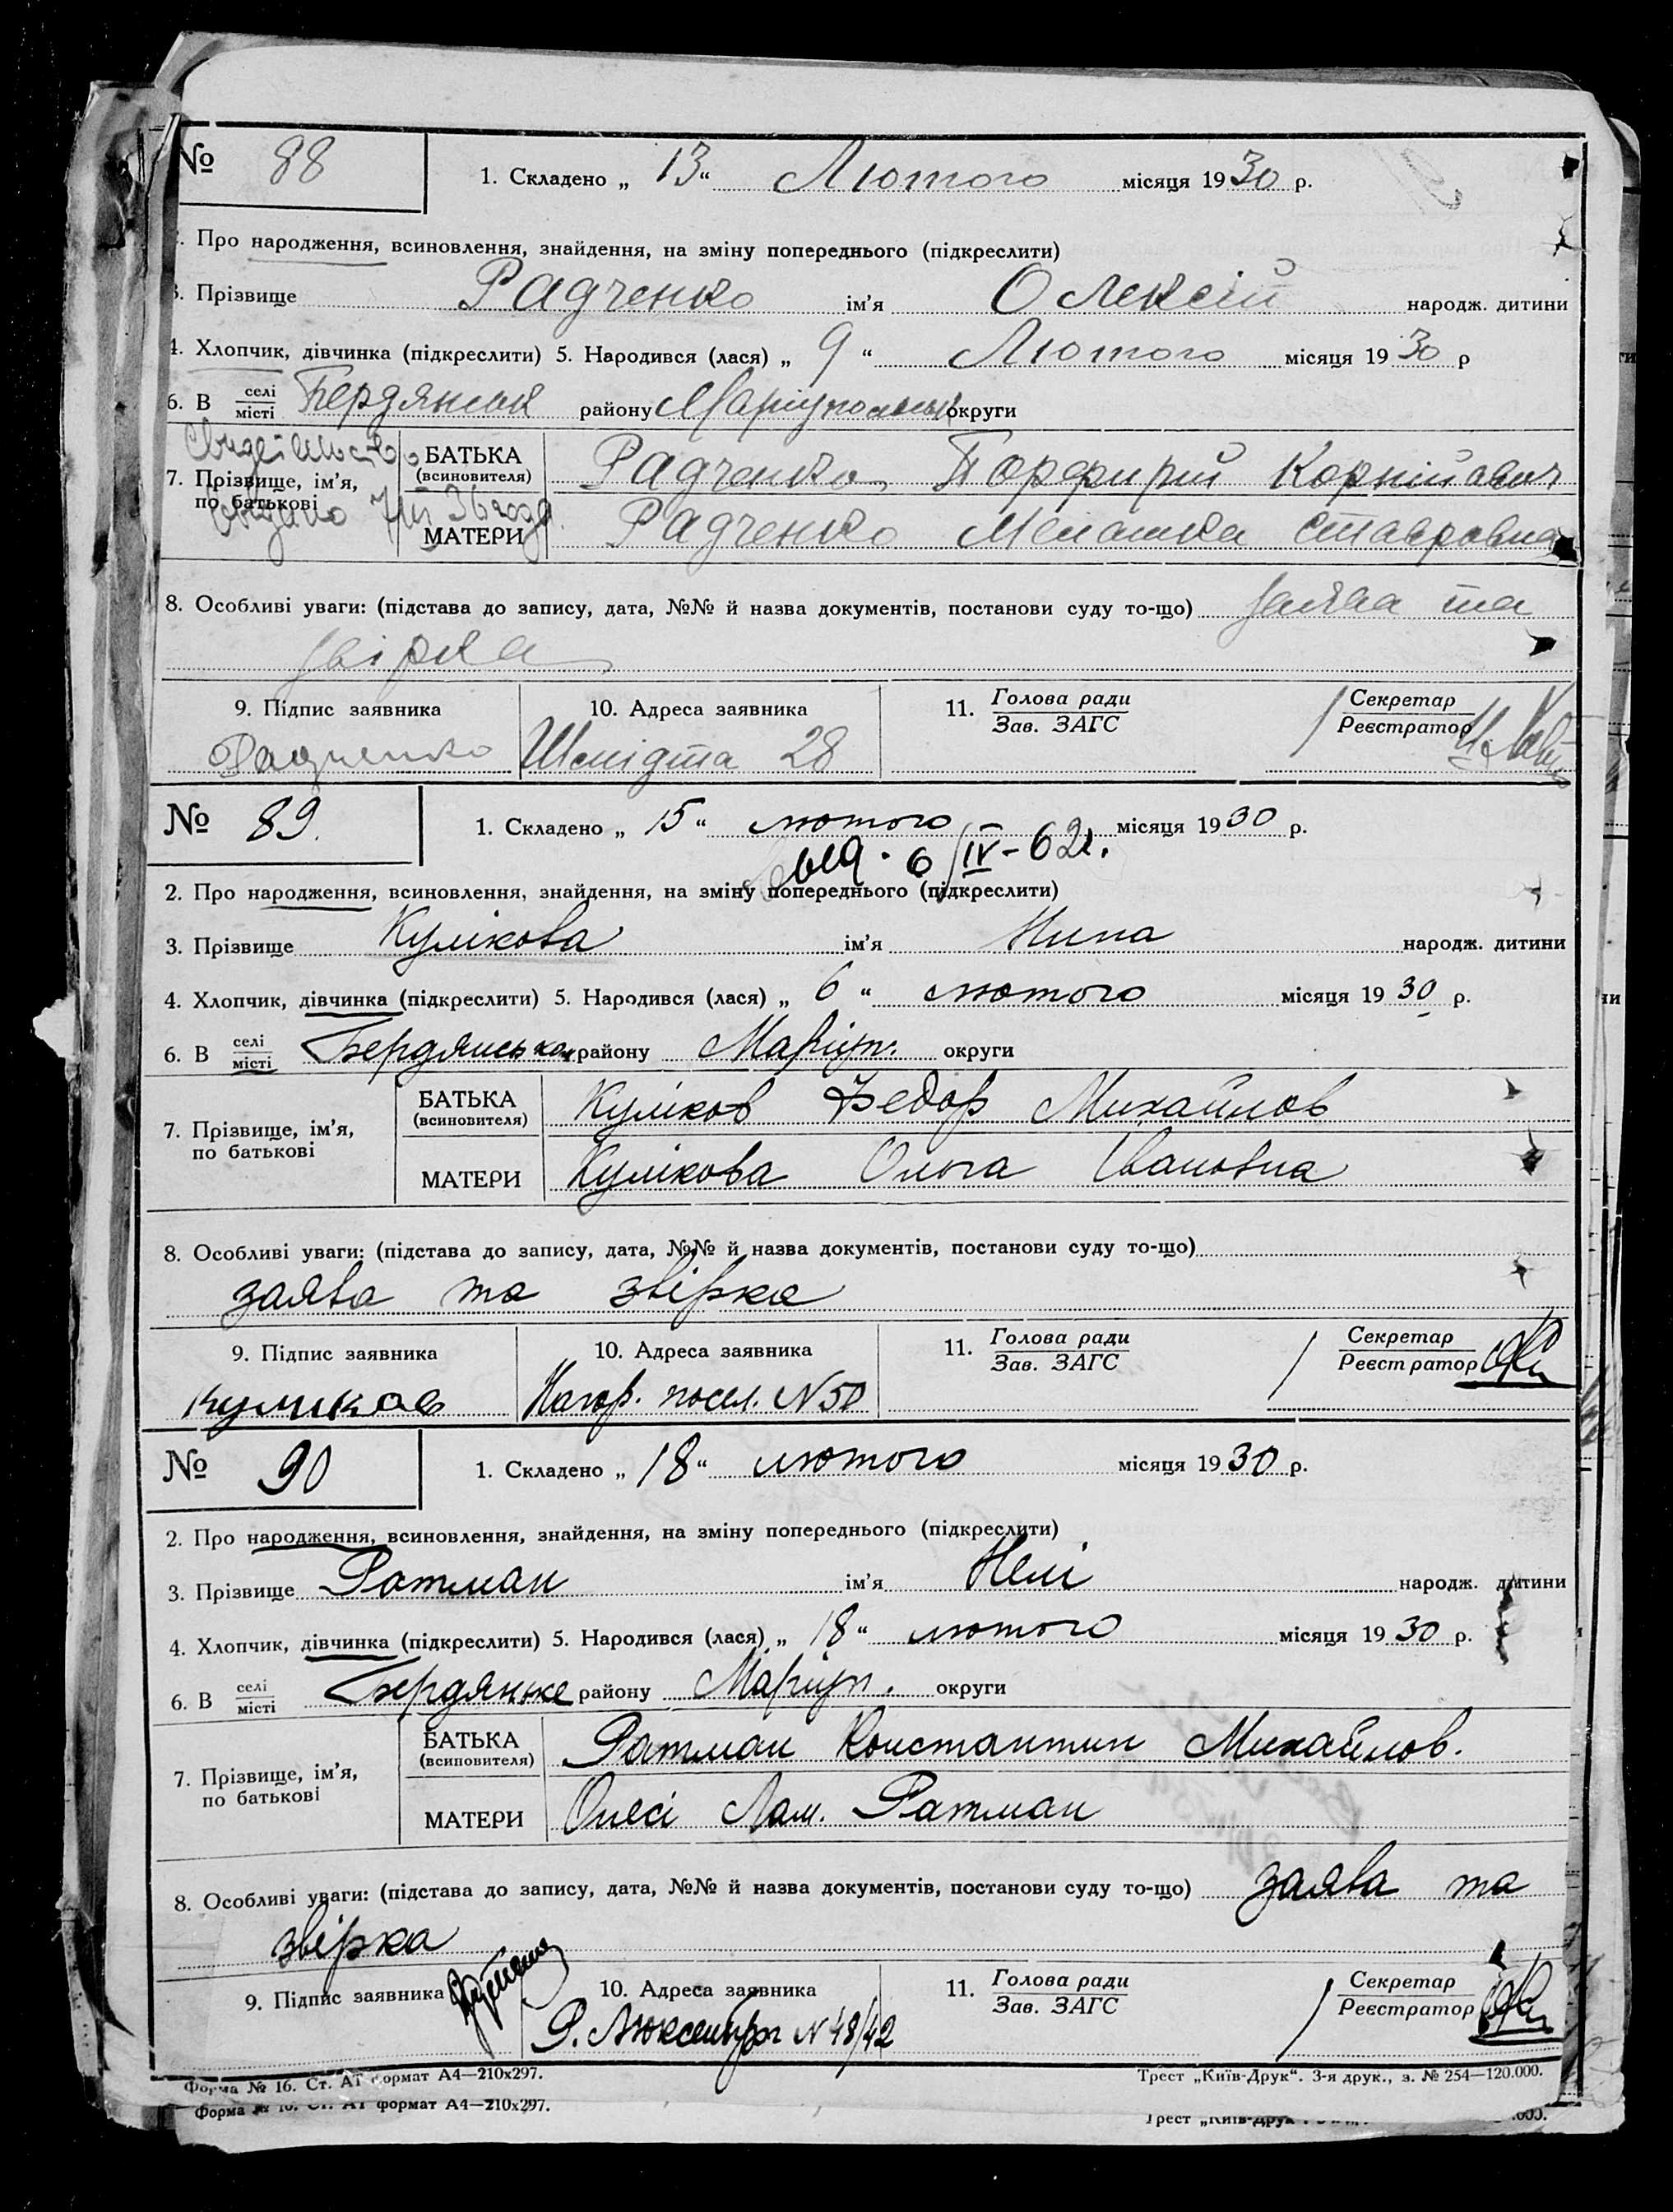 № 88
1. Складено „ 13 “ Лютого місяця 1930 р.
Про народження, всиновлення, знайдення, на зміну попереднього (підкреслити)
3. Прізвище Радченко ім’я Олексій народж. дитини
4. Хлопчик, дівчинка (підкреслити) 5. Народився (лася) „ 9 “ Лютого місяця 1930 р
6. В селі місті Бердянськ району Маріупольськ округи
7. Прізвище, ім’я, по батькові
БАТЬКА (всиновителя) Радченко Порфирій Корнійович
МАТЕРИ Радченко Мелашка Ставровна
8. Особливі уваги: (підстава до запису, дата, №№ й назва документів, постанови суду то-що) заява та
звірка
9. Підпис заявника 10. Адреса заявника 11. Голова ради Зав. ЗАГС Секретар Реєстратор
Радченко Шмідта 28
№ 89.
1. Складено „ 15 “ лютого місяця 1930 р.
6/IV-62г.
2. Про народження, всиновлення, знайдення, на зміну попереднього (підкреслити)
3. Прізвище Кулікова ім’я Нина народж. дитини
4. Хлопчик, дівчинка (підкреслити) 5. Народився (лася) „ 6 “ лютого місяця 1930 р.
6. В селі місті Бердянськом району Маріуп. округи
7. Прізвище, ім’я, по батькові
БАТЬКА (всиновителя) Куліков Федор Михайлов
МАТЕРИ Кулікова Ольга Івановна
8. Особливі уваги: (підстава до запису, дата, №№ й назва документів, постанови суду то-що)
заява та звірка
9. Підпис заявника 10. Адреса заявника 11. Голова ради Зав. ЗАГС Секретар Реєстратор
Куликов Нагор. посел. N 50
№ 90
1. Складено „ 18 “ лютого місяця 1930 р.
2. Про народження, всиновлення, знайдення, на зміну попереднього (підкреслити)
3. Прізвище Ратман ім’я Нелі народж. дитини
4. Хлопчик, дівчинка (підкреслити) 5. Народився (лася) „ 18 “ лютого місяця 1930 р.
6. В селі місті Бердянське району Маріуп. округи
7. Прізвище, ім’я, по батькові
БАТЬКА (всиновителя) Ратман Константин Михайлов.
МАТЕРИ Олесі Ратман
8. Особливі уваги: (підстава до запису, дата, №№ й назва документів, постанови суду то-що) заява та
звірка
9. Підпис заявника 10. Адреса заявника 11. Голова ради Зав. ЗАГС Секретар Реєстратор
Р. Люксембург N 48/42
Форма № 16. Ст. АТ формат А4—210x297. Трест „Київ-Друк“. 3-я друк., з. № 254—120.000.
формат А4—210x297.